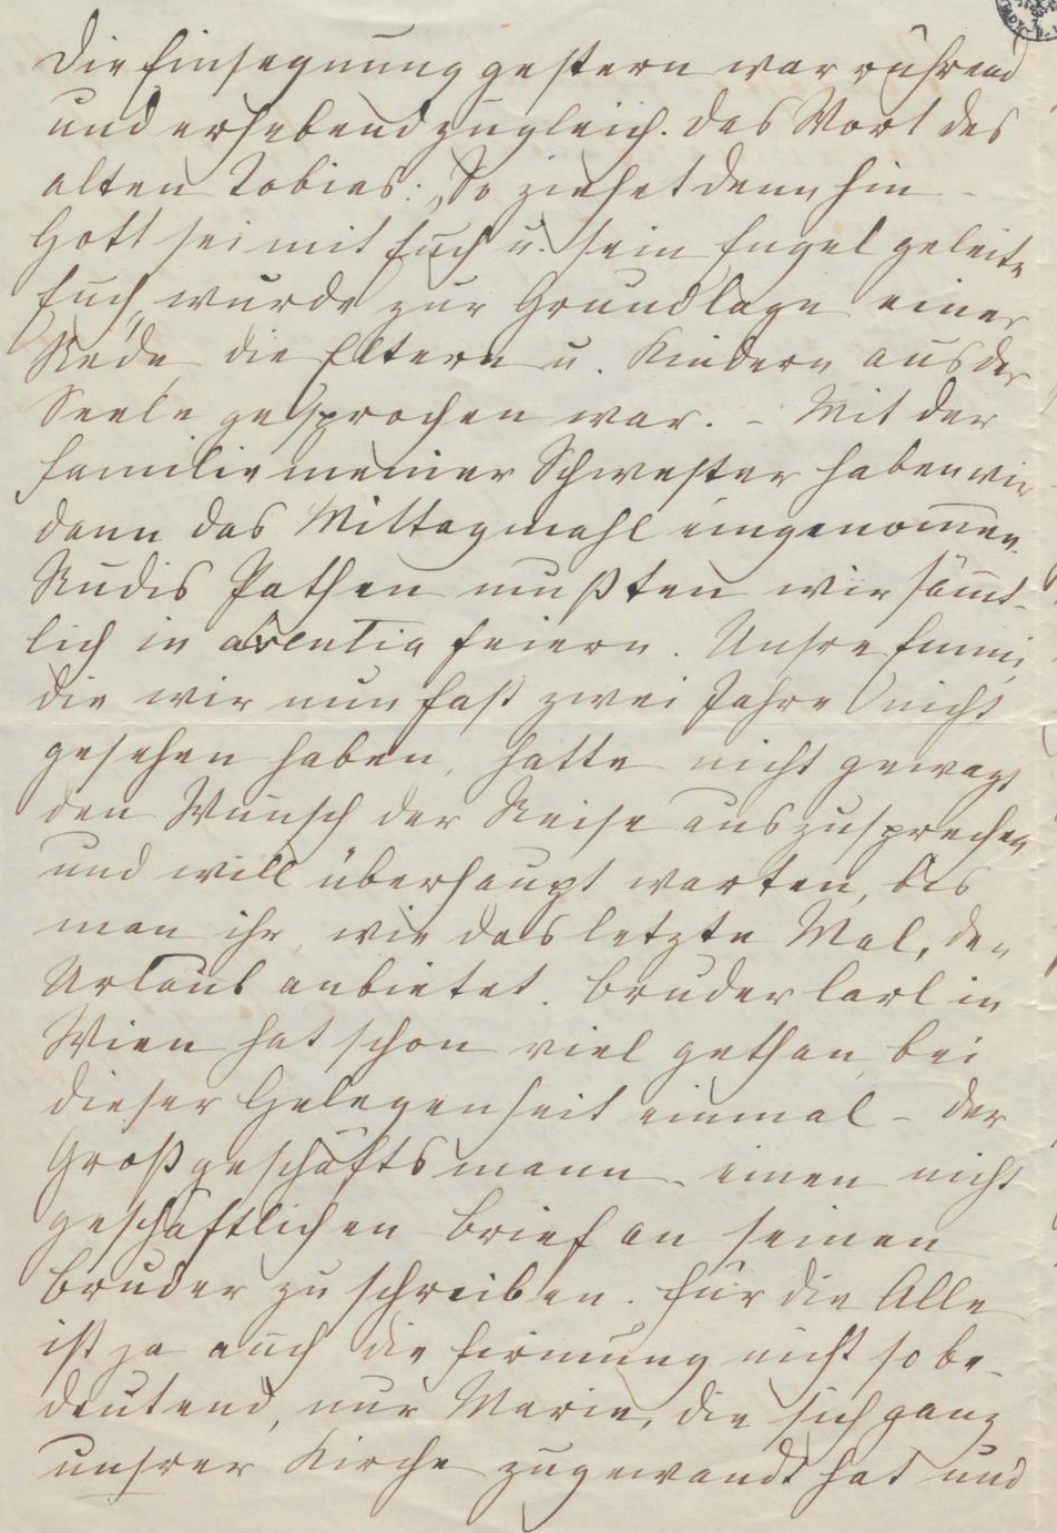 Die Einsegnung gestern war rührend
und erhebend zugleich. Das Wort des
alten Tobias: „So ziehet denn hin –
Gott sei mit Euch u. sein Engel geleite
Euch“ wurde zur Grundlage einer
Rede, die Eltern u. Kindern aus der
Seele gesprochen war. – Mit der
Familie meiner Schwester haben wir
dann das Mittagmahl eingenom̄en.
Rudis Pathen mußten wir säm̄t-
lich in absentia feiern. Unsre Emmi,
die wir nun fast zwei Jahre nicht
gesehen haben, hatte nicht gewagt
den Wunsch der Reise auszusprechen
und will überhaupt warten, bis
man ihr, wie das letzte Mal, den
Urlaub anbietet. Bruder Carl in
Wien hat schon viel gethan, bei
dieser Gelegenheit einmal – der
Großgeschäftsmann – einen nicht
geschäftlichen Brief an seinen
Bruder zu schreiben. Für die Alle
ist ja auch die Firmung nicht so be-
deutend, nur Marie, die sich ganz
unsrer Kirche zugewandt hat und